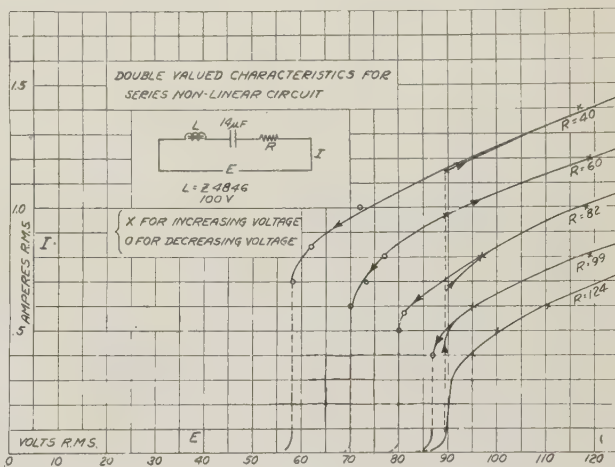 DOUBLE VALUED CHARACTERISTICS FOR
SERIES NON-LINEAR CIRCUIT
L
14µF
R
E
I
L = Z 4846
100 V
X FOR INCREASING VOLTAGE
O FOR DECREASING VOLTAGE
1.5
1.0
.5
I
AMPERES R.M.S.
R=40
R=60
R=82
R=99
R=124
VOLTS R.M.S.
E
0
10
20
30
40
50
60
70
80
90
100
110
120